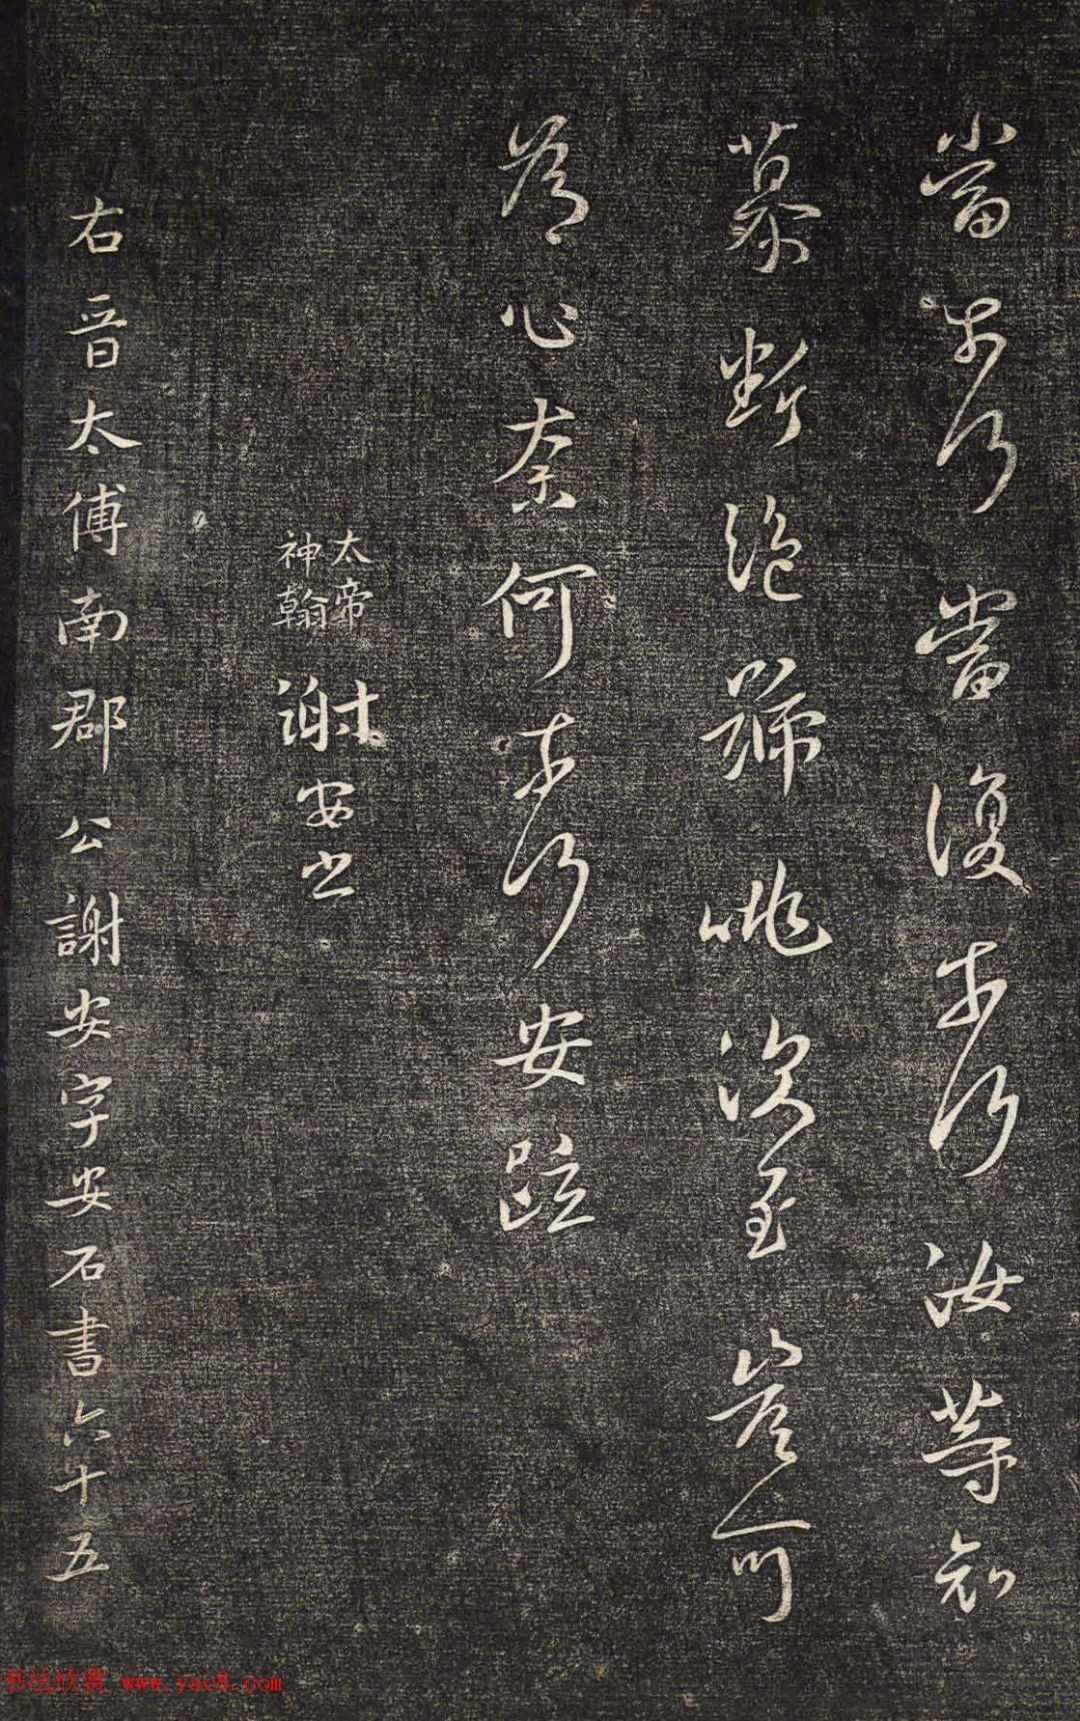 當奈何當復奈何汝等哀
慕斷絶號咷深至豈可
為心奈何奈何安疏
太帝
神翰
謝安書
右晉太傅南郡公謝安字安石書六十五
书法欣赏 www.yac8.com